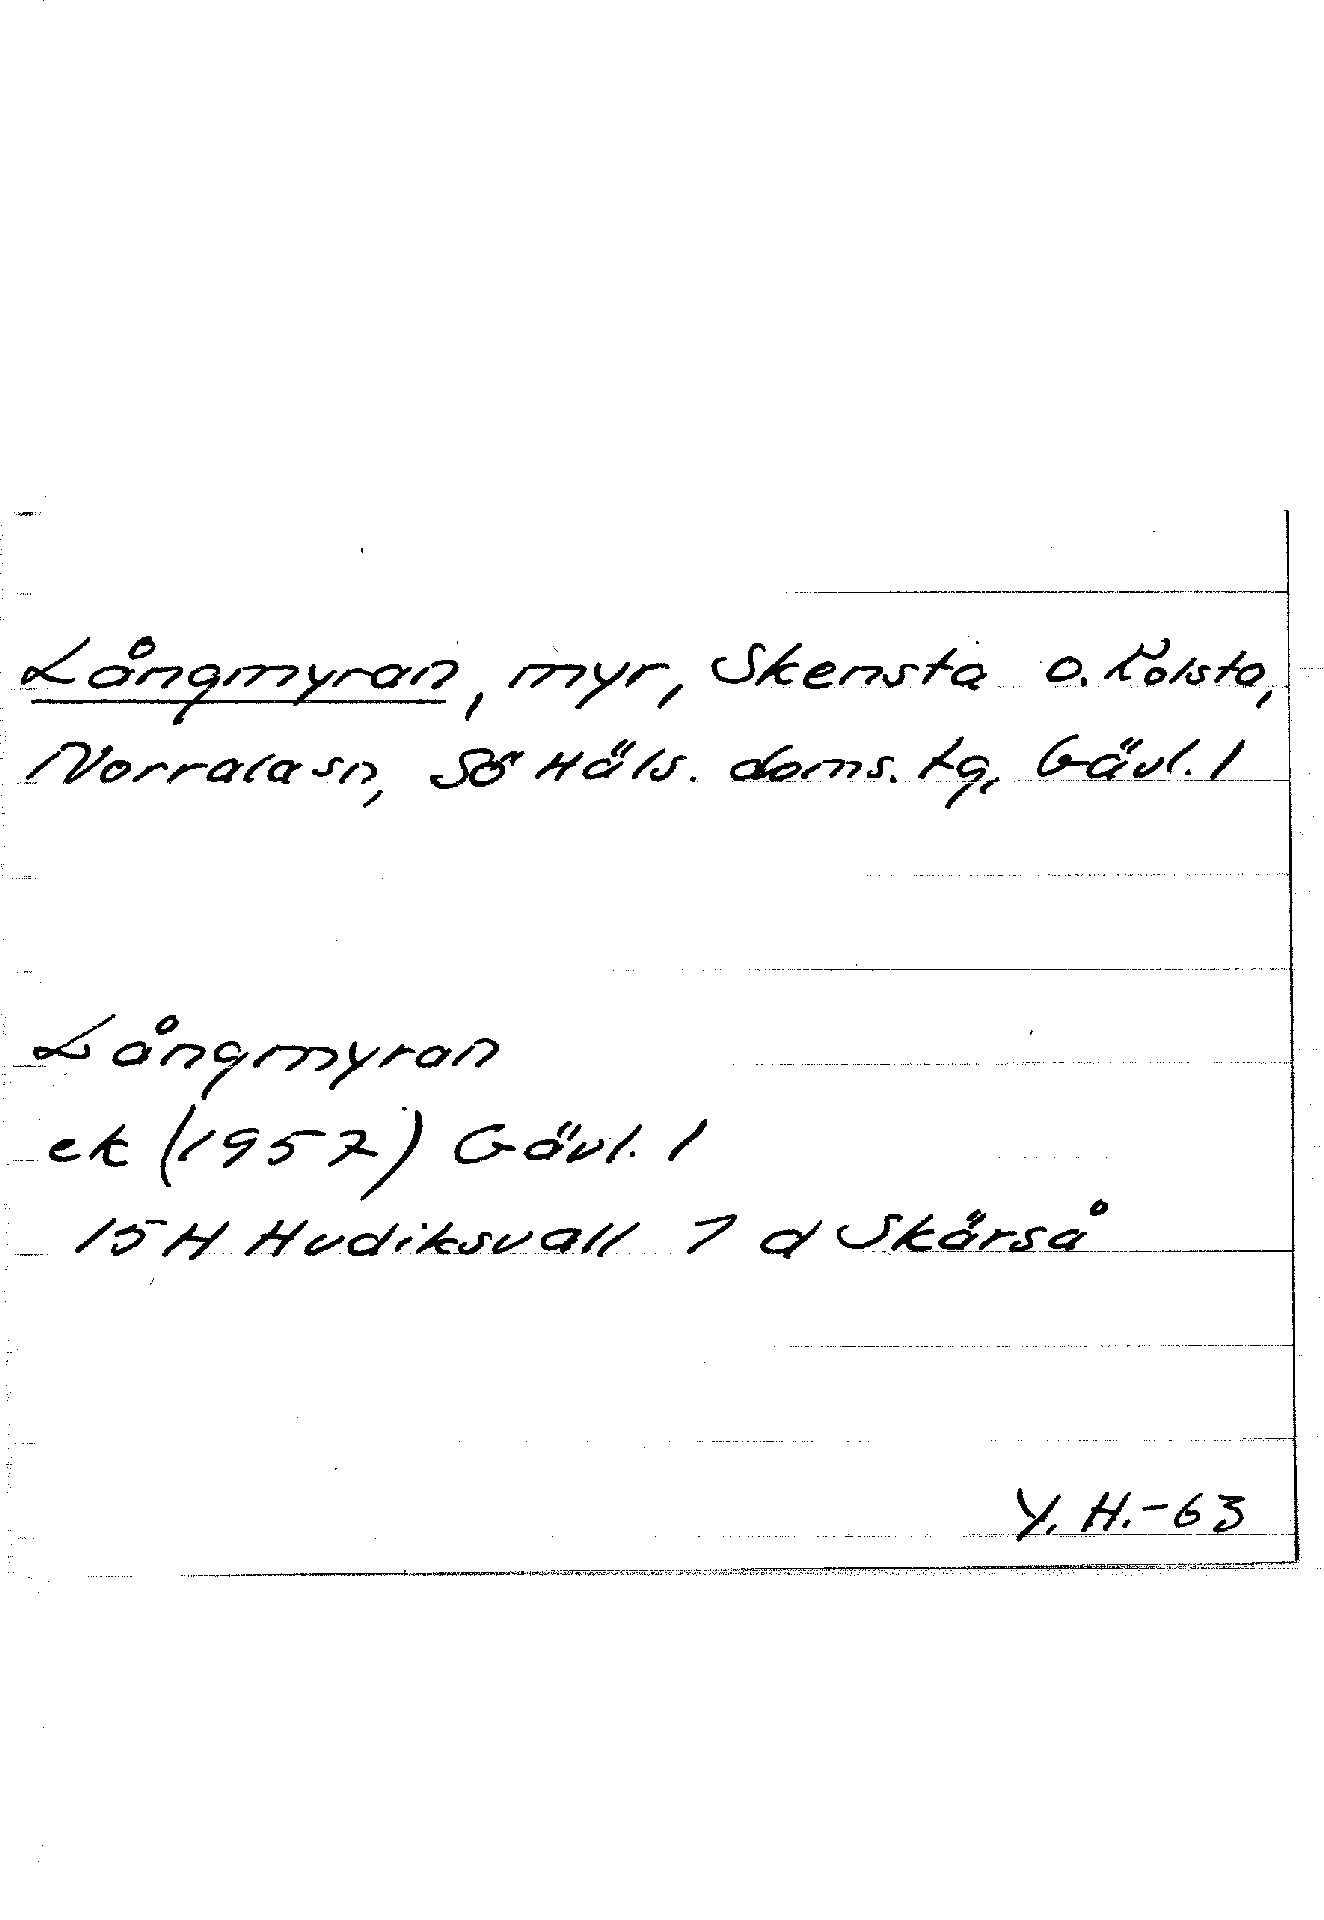 Långmyran, myr, Skensta o. Kolsta,
Norrala sn, Sö Häls. doms. tg, Gävl. l
Långmyran
ek (1957) Gävl. l
15H Hudiksvall 7 d Skärså
Y. H.-63